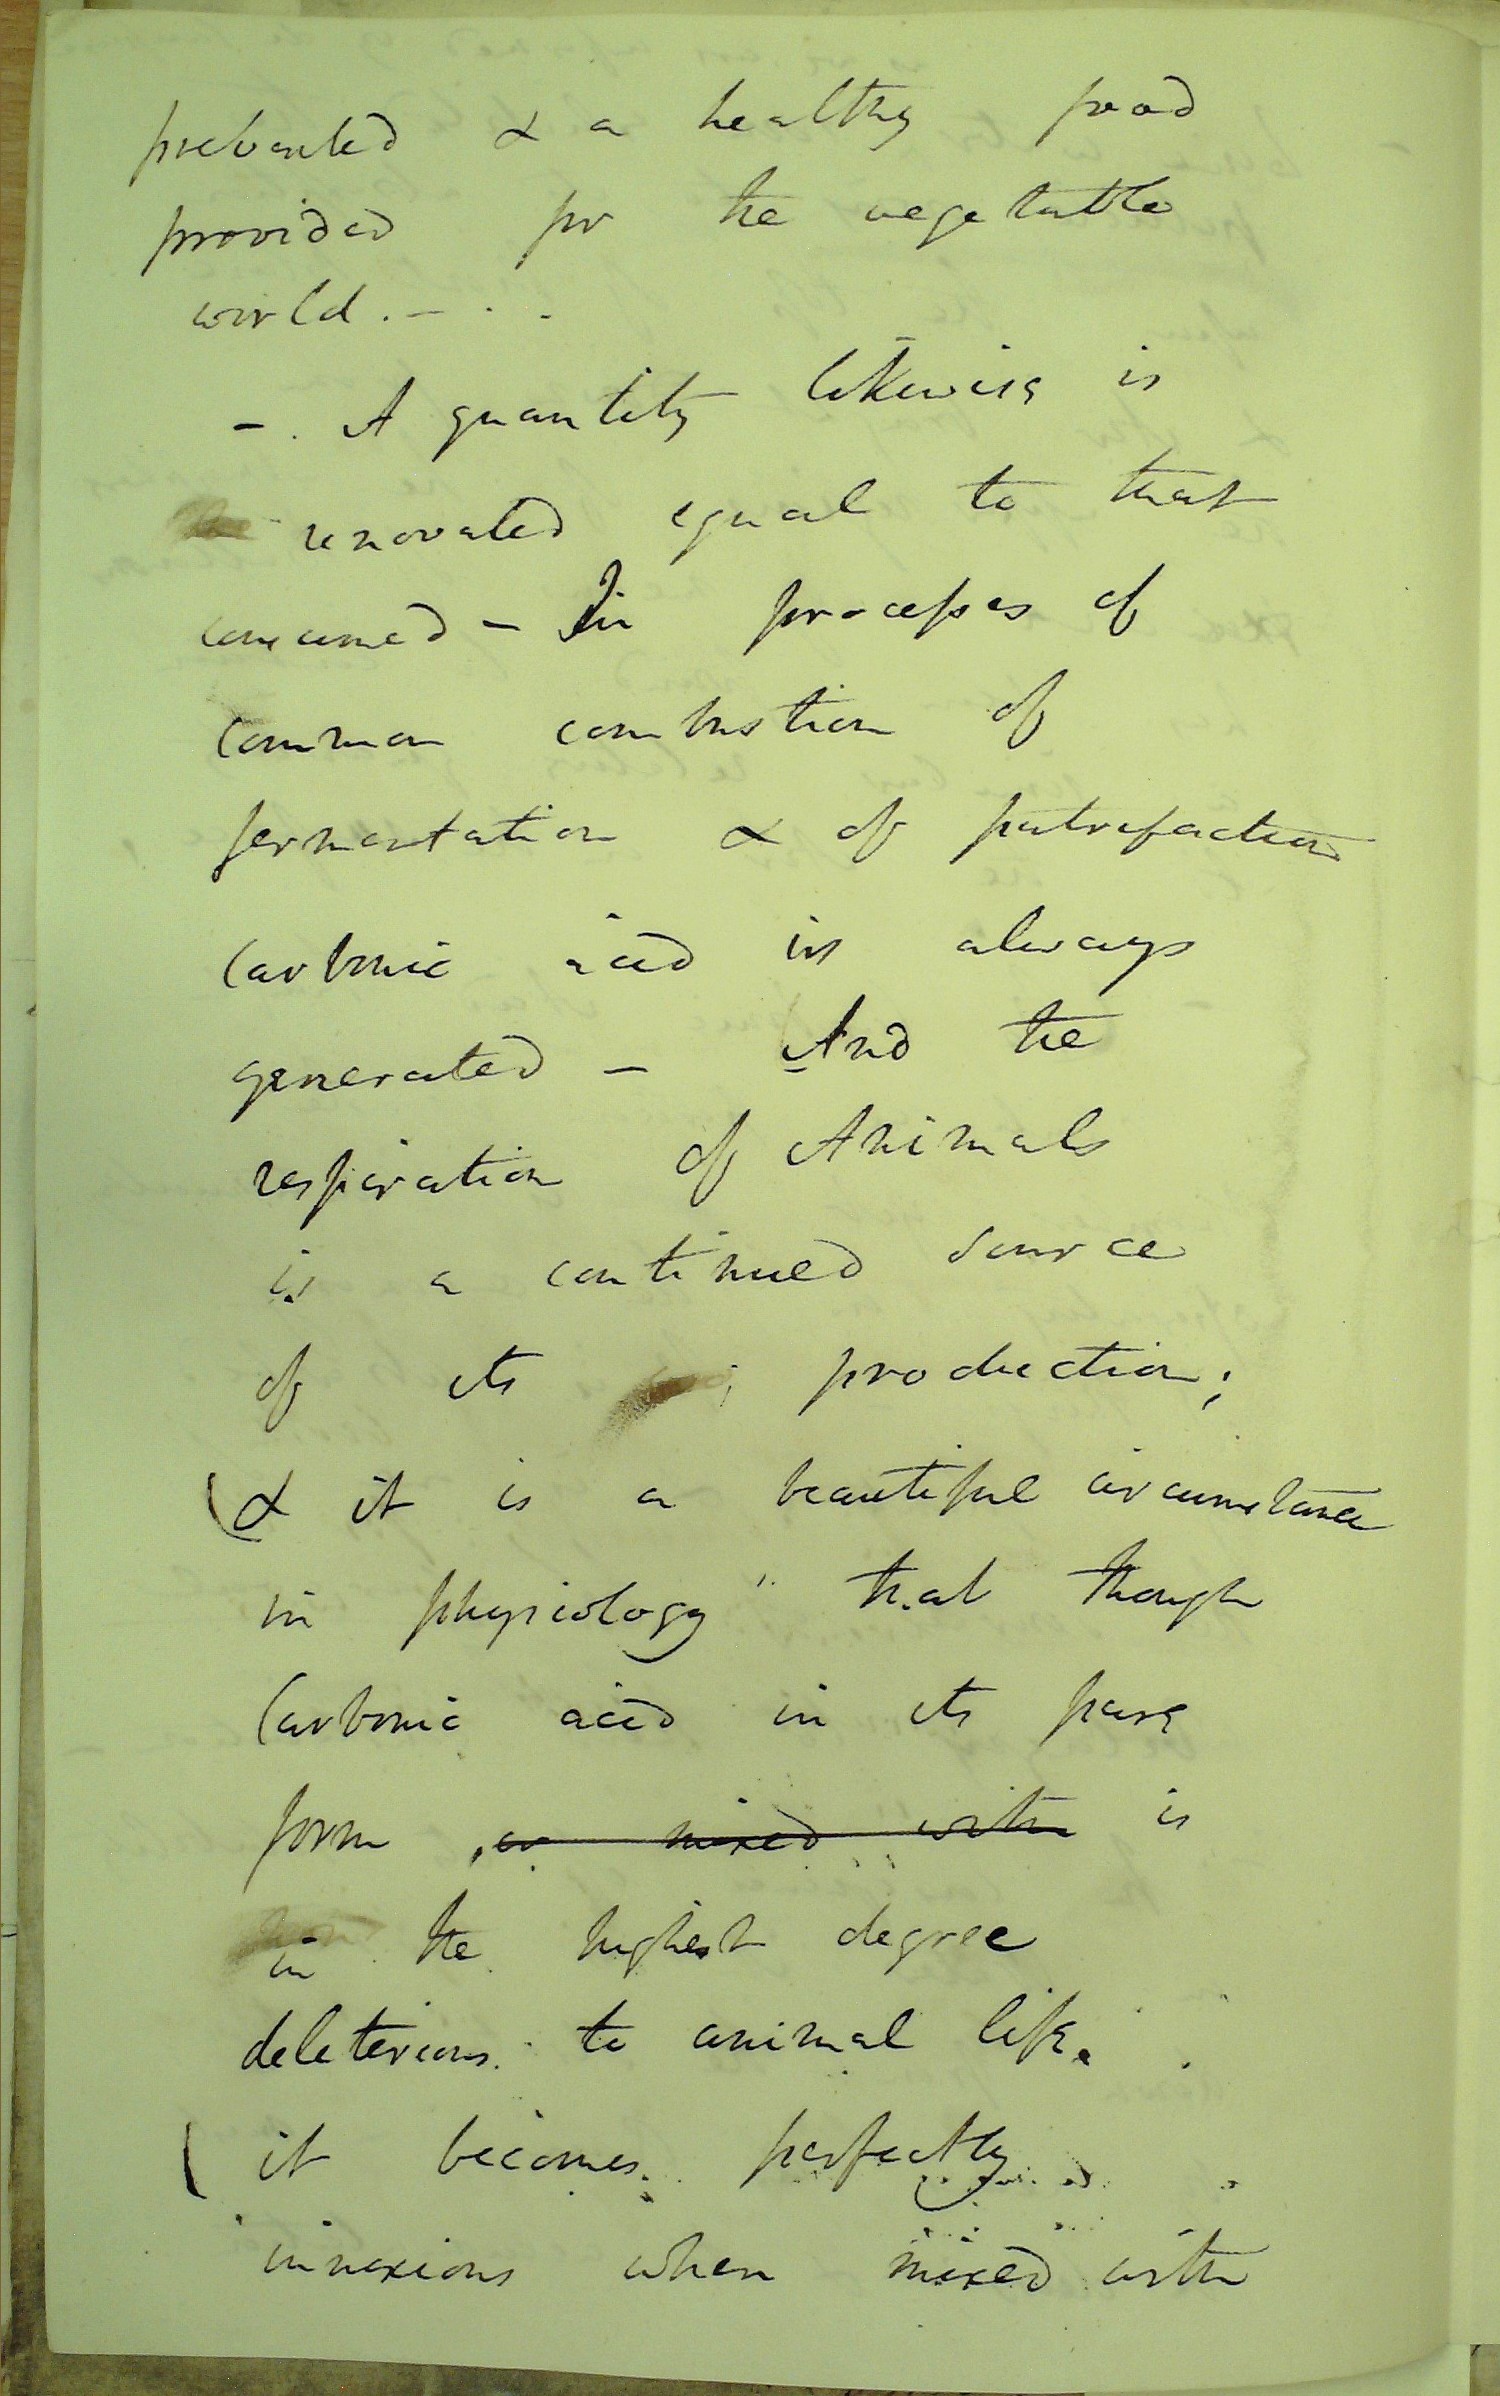 prevented & a healthy food
provided for the vegetable
world. -
-. A quantity likewise is
renovated equal to that
consumed - In processes of
common combustion of
fermentation & of putrefaction
Carbonic acid is always
generated - And the
respiration of Animals
is a continued source
of its production;
(& it is a beautiful circumstance
in physiology that though
Carbonic acid in its pure
form or mixed with is
in the highest degree
deleterious to animal life.
(it becomes perfectly
innoxious when mixed with